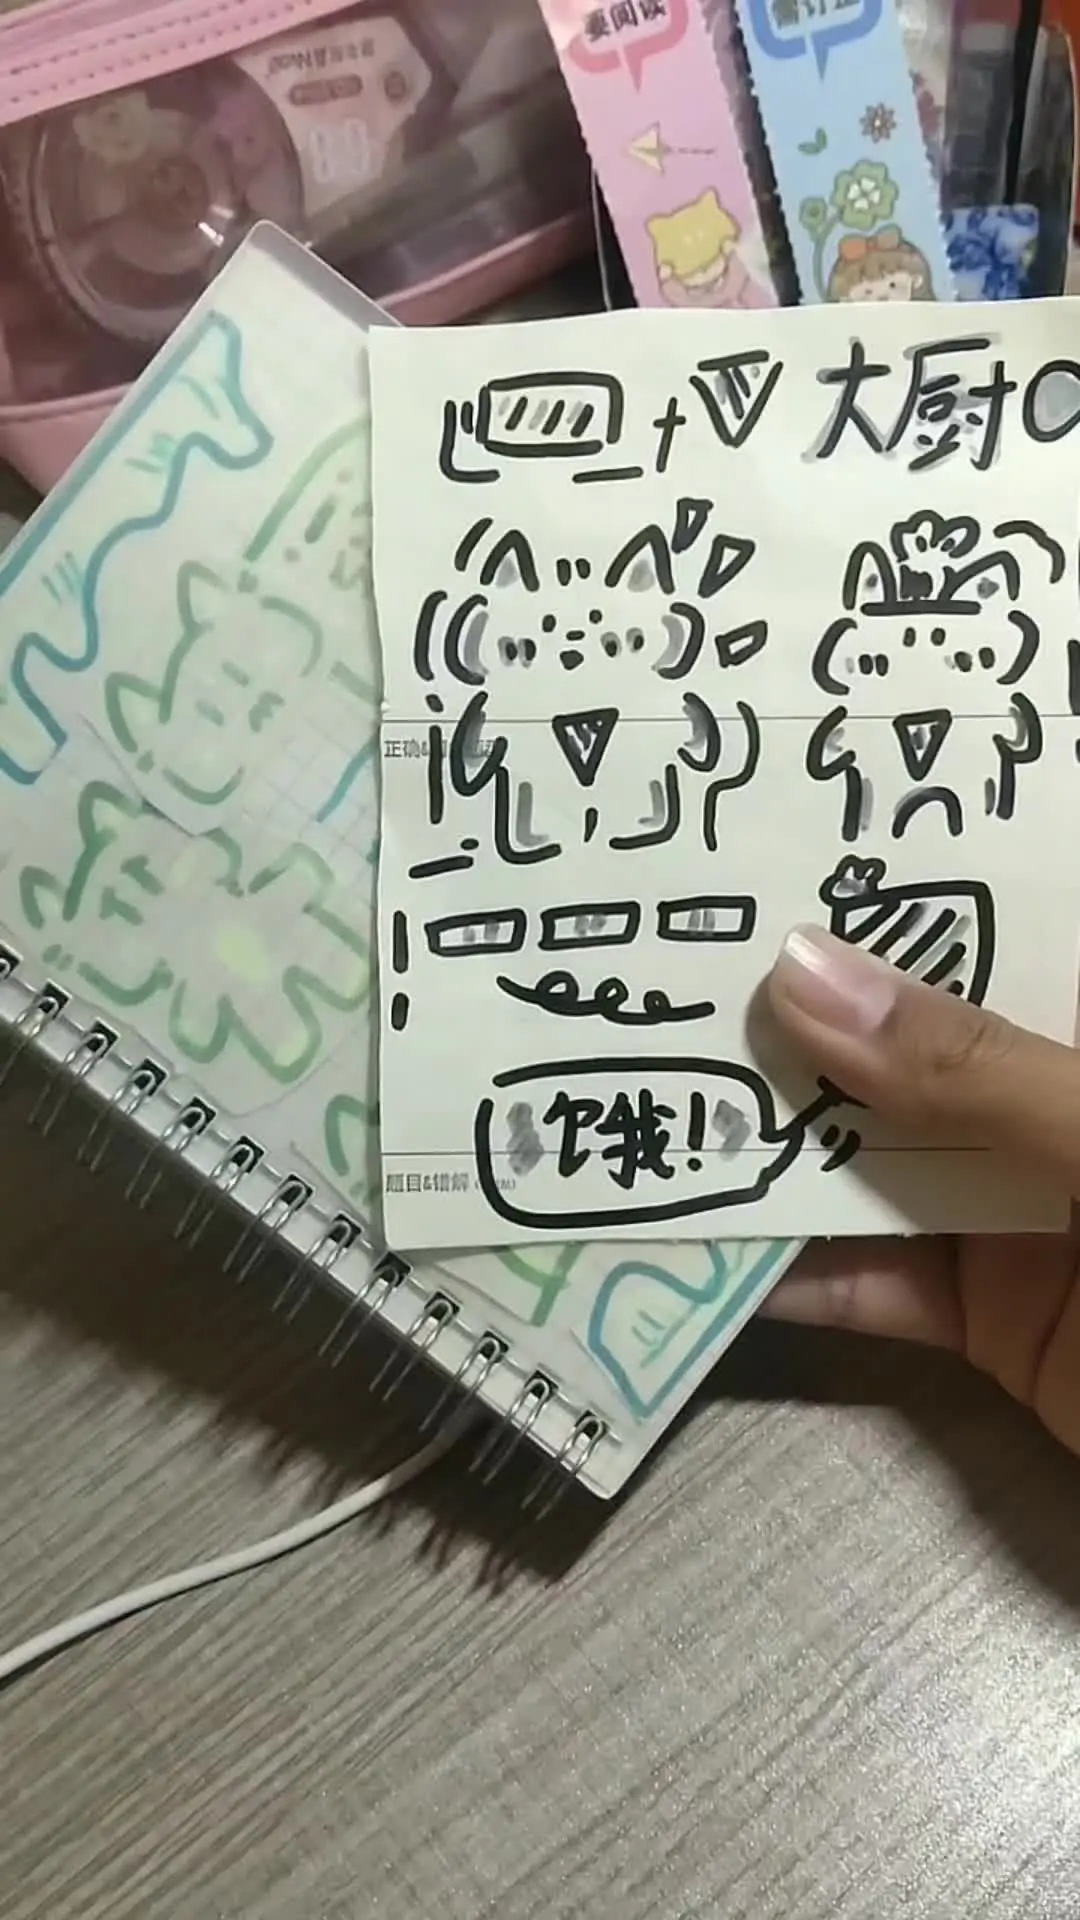 要阅读
需订正
大厨
正确&
饿！
题目&错解